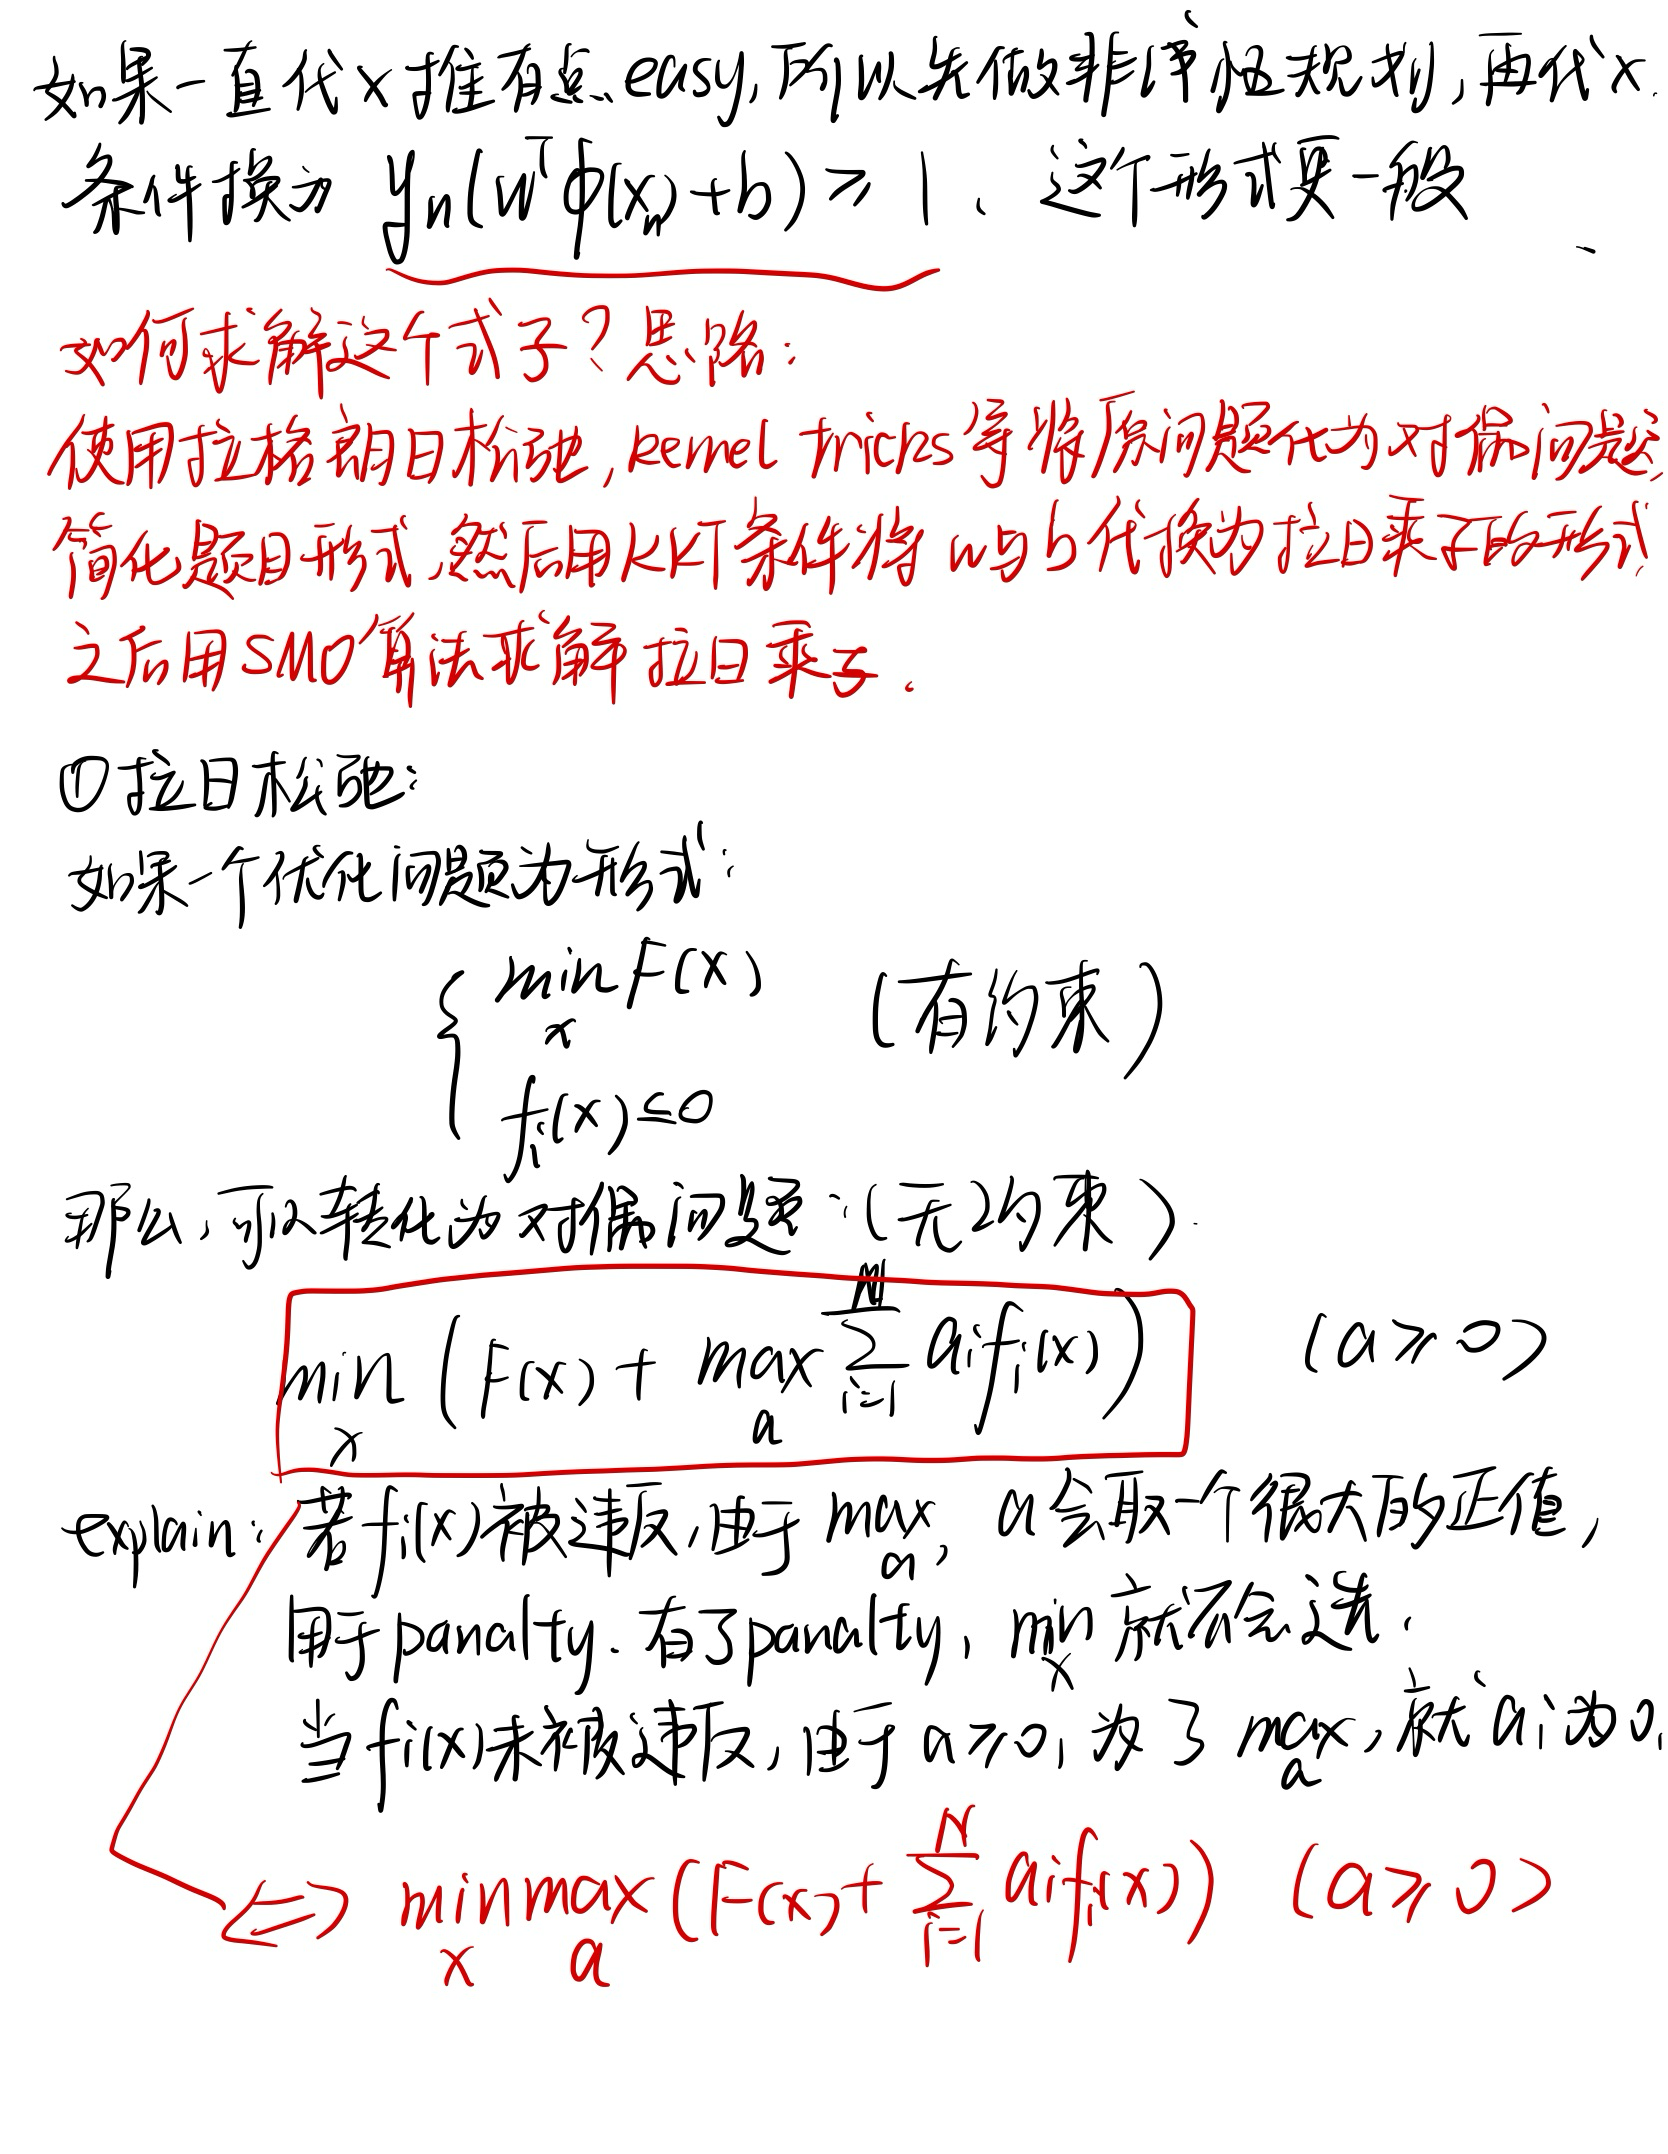 如果一直代x推有点easy,所以先做非线性规划,再代x.
条件换为 yₙ(wᵀφ(xₙ)+b)≥1、这个形式更一般
如何求解这个式子?思路:
使用拉格朗日松弛,kernel tricks等将原问题化为对偶问题,
简化题目形式,然后用KKT条件将w与b代换为拉日乘子的形式,
之后用SMO算法求解拉日乘子.
①拉日松弛:
如果一个优化问题为形式:
{ min F(x) (有约束)
x
fᵢ(x)≤0
那么,可以转化为对偶问题:(无约束)
min (F(x) + max Σ aᵢfᵢ(x)) (a≥0)
x a i=1 N
explain: 若fᵢ(x)被违反,由于max, a会取一个很大的正值,
a
用于panalty.有了panalty,min就不会选.
x
当fᵢ(x)未被违反,由于a≥0,为了max,就aᵢ为0.
a
⇔ min max (F(x)+ Σ aᵢfᵢ(x)) (a≥0)
x a i=1 N